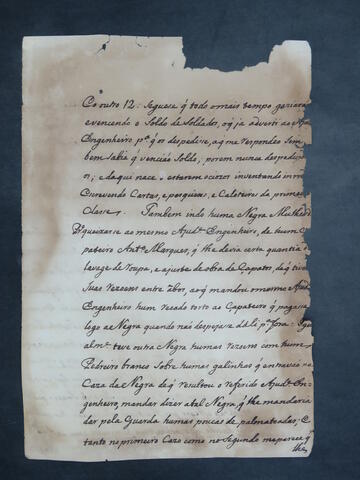 Co outo 12: Seguese q̃ todo o mais tempo gozarao
e vencendo o Soldo de Soldados, oq̃ ja adverti ao
Engenheiro p.ª q̃ os despedise, aq̃ me respondeo
bem sabia q̃ vencião Soldo, porem nunca despedio
os; e daqui nace estarem ociozos inventando in
Escrevendo Cartas, e pasquins, e Caloteiros da primeira
Classe. Tambem indo huma Negra
Queixarse ao mesmo Ajud.e Engenheiro, de hum Ça
pateiro Ant.º Marques, q̃ lhe devia certa quantia de
lavage de Roupa, e ajuste de obra de Çapatos, de q̃ tiver
suas rezoens entre ambos, aoq̃ mandou o mesmo Ajud.
Engenheiro hum recado torto ao Çapateiro q̃ pagase
logo a Negra quando não despejase dali p.ª fora:
alm.te teve outra Negra humas rezoens com hum
Pedreiro branco sobre humas galinhas q̃ entravão na
Caza da Negra de q̃ rezultou o referido Ajud.e En
genheiro, mandar dizer a tal Negra, q̃ lhe mandaria
dar pela Guarda humas poucas de palmatoadas; E
tanto no primeiro Cazo como no Segundo me parece q̃
lhe